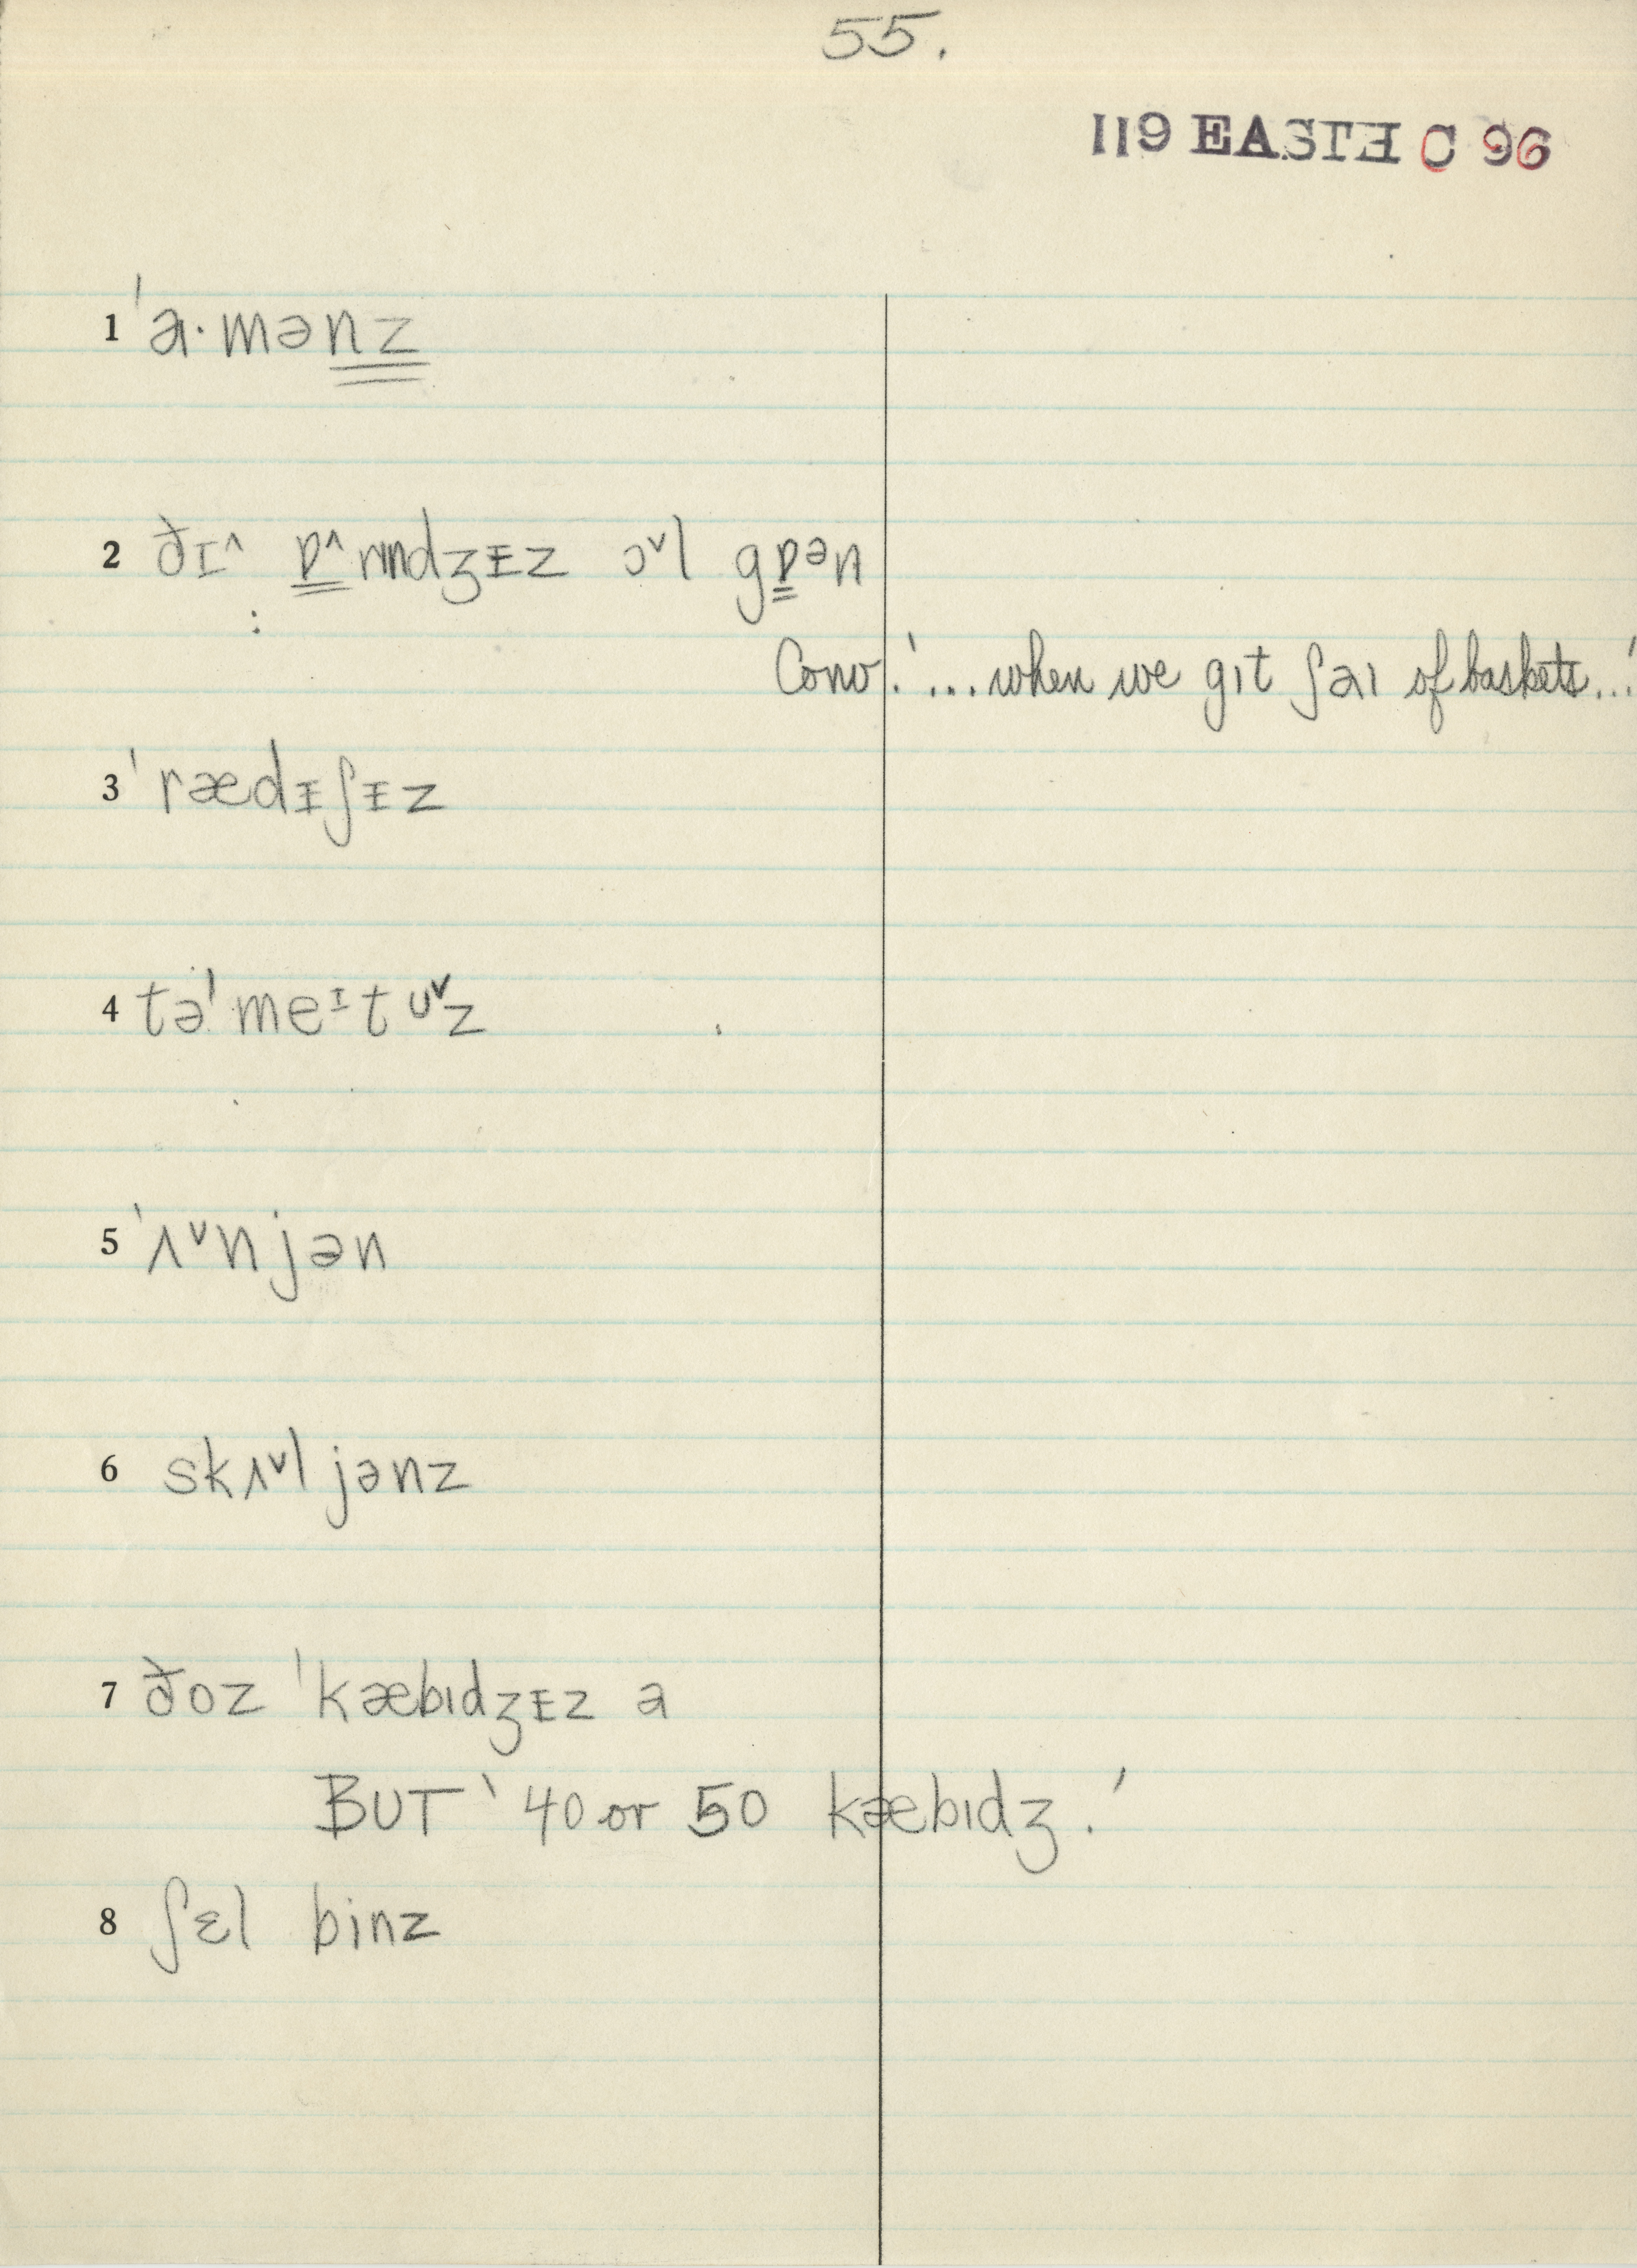 55.
119 EASTE C 96
1 ˈa·mənz
2 ðɪ^ ɒ^rɪndʒɪz ɔˇl gɒən
Conv. '...when we gɪt ʃaɪ of baskets...'
3 ˈrædᵻʃᵻz
4 təˈmeᶦtʊˇz
5 ˈʌˇnjən
6 skʌˇljənz
7 ðoz ˈkæbɪdʒᵻz a
BUT '40 or 50 kæbɪdʒ.'
8 ʃɛl binz